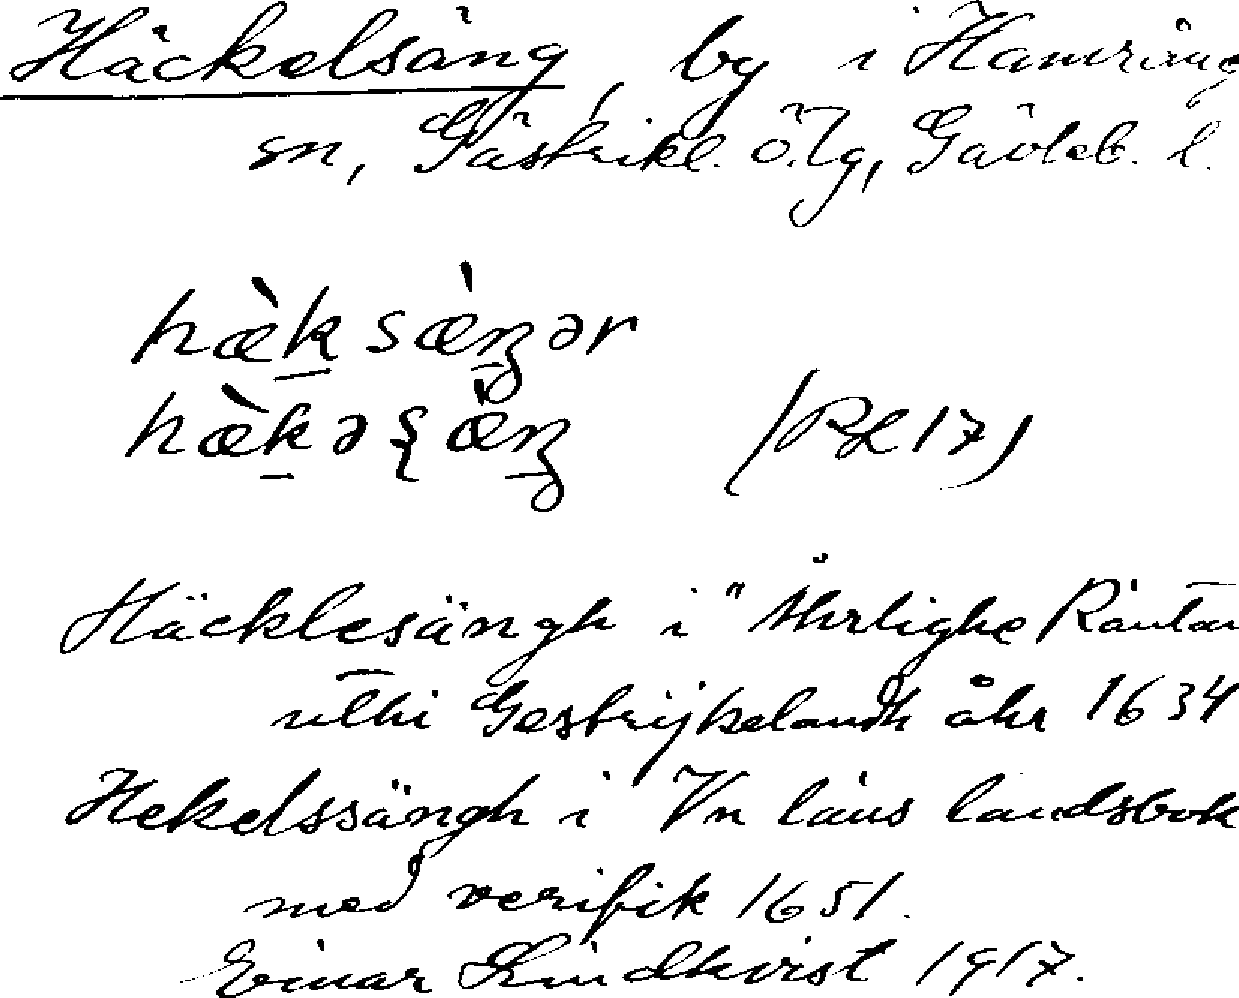 Häckelsäng, by i Hamrång
sn, Gästrikl. ö. Tg, Gävleb. l.
hæ̀k̠sæ̀n̠ər
hæ̀k̠əsæ̀n̠ (RL 17)
Häcklesängh i "Åhrlighe Räntan
uthi Gestrijkelandh åhr 1634
Hekelssängh i Vn läns landsbok
med verifik 1651.
Einar Lindkvist 1917.